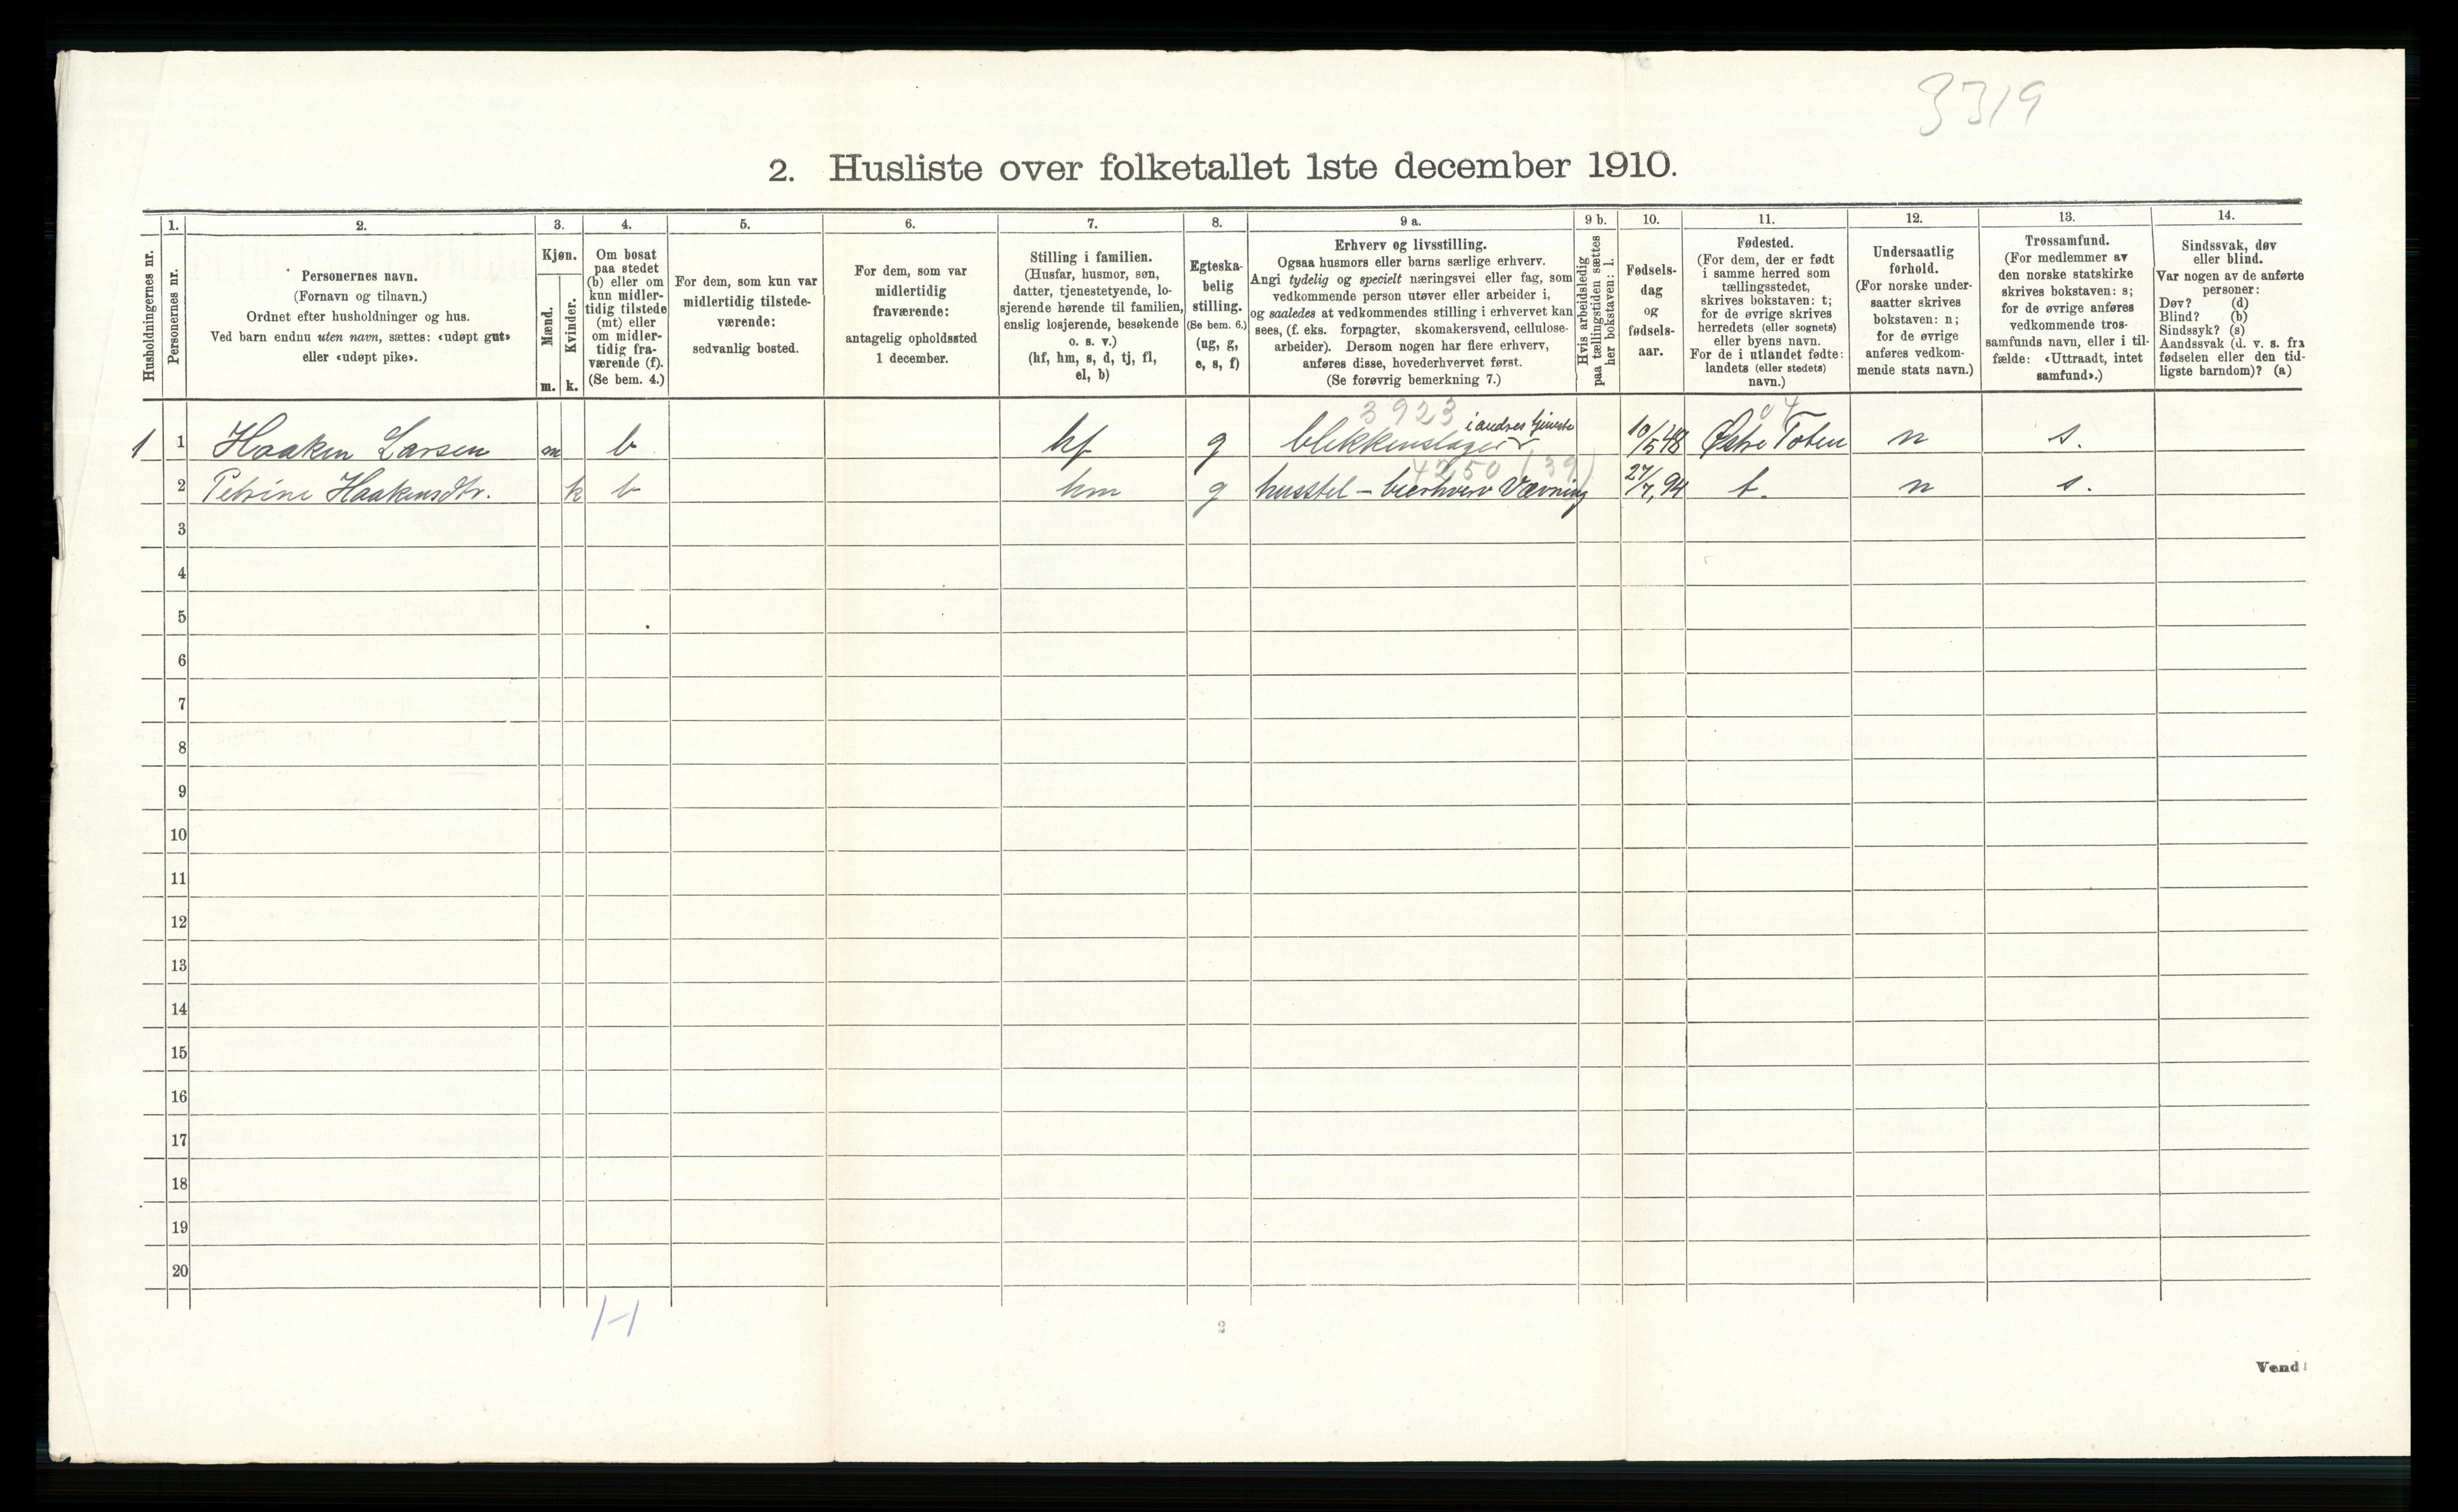 3319
2. Husliste over folketallet 1ste december 1910.
Husholdningernes nr.
1.
Personernes nr.
2.
Personernes navn.
(Fornavn og tilnavn.)
Ordnet efter husholdninger og hus.
Ved barn endnu uten navn, sættes: «udøpt gut»
eller «udøpt pike».
3.
Kjøn.
Mænd.
Kvinder.
m. k.
4.
Om bosat
paa stedet
(b) eller om
kun midler-
tidig tilstede
(mt) eller
om midler-
tidig fra-
værende (f).
(Se bem. 4.)
5.
For dem, som kun var
midlertidig tilstede-
værende:
sedvanlig bosted.
6.
For dem, som var
midlertidig
fraværende:
antagelig opholdssted
1 december.
7.
Stilling i familien.
(Husfar, husmor, søn,
datter, tjenestetyende, lo-
sjerende hørende til familien,
enslig losjerende, besøkende
o. s. v.)
(hf, hm, s, d, tj, fl,
el, b)
8.
Egteska-
belig
stilling.
(Se bem. 6.)
(ug, g,
e, s, f)
9 a.
Erhverv og livsstilling.
Ogsaa husmors eller barns særlige erhverv.
Angi tydelig og specielt næringsvei eller fag, som
vedkommende person utøver eller arbeider i,
og saaledes at vedkommendes stilling i erhvervet kan
sees, (f. eks. forpagter, skomakersvend, cellulose-
arbeider). Dersom nogen har flere erhverv,
anføres disse, hovederhvervet først.
(Se forøvrig bemerkning 7.)
9 b.
Hvis arbeidsledig
paa tællingstiden sættes
her bokstaven: l.
10.
Fødsels-
dag
og
fødsels-
aar.
11.
Fødested.
(For dem, der er født
i samme herred som
tællingsstedet,
skrives bokstaven: t;
for de øvrige skrives
herredets (eller sognets)
eller byens navn.
For de i utlandet fødte:
landets (eller stedets)
navn.)
12.
Undersaatlig
forhold.
(For norske under-
saatter skrives
bokstaven: n;
for de øvrige
anføres vedkom-
mende stats navn.)
13.
Trossamfund.
(For medlemmer av
den norske statskirke
skrives bokstaven: s;
for de øvrige anføres
vedkommende tros-
samfunds navn, eller i til-
fælde: «Uttraadt, intet
samfund».)
14.
Sindssvak, døv
eller blind.
Var nogen av de anførte
personer:
Døv? (d)
Blind? (b)
Sindssyk? (s)
Aandssvak (d. v. s. fra
fødselen eller den tid-
ligste barndom)? (a)
3923 04
1 1 Haaken Larsen m b hf g blikkenslager i andres tjeneste 10/5 48 Østre Toten n s.
4250 (39)
2 Petrine Haakensdtr. k b hm g husstel – bierhverv Vævning 27/7, 94 t. n s.
3
4
5
6
7
8
9
10
11
12
13
14
15
16
17
18
19
20
2
Vend!